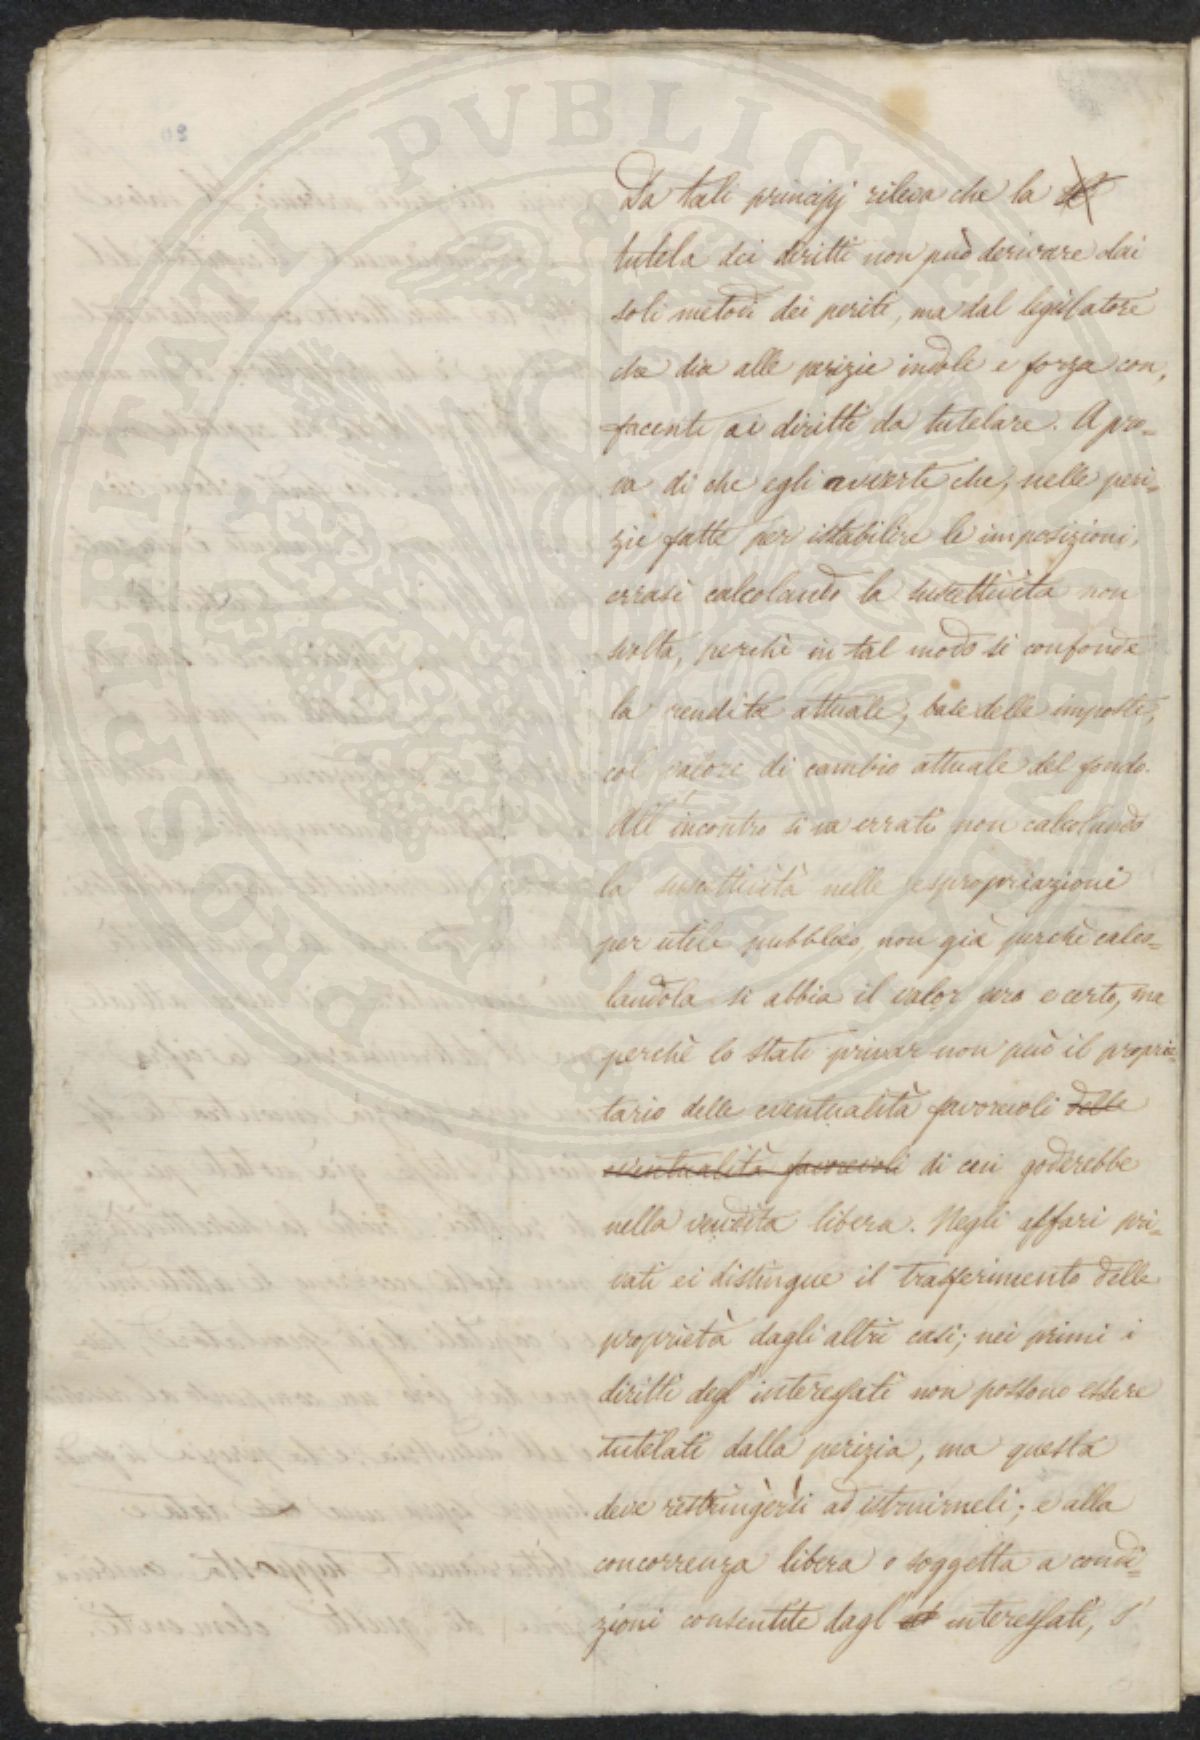 PROSPERITATI PUBLICAE
Da tali principj rileva che la
tutela dei diritti non può derivare dai
soli metodi dei periti, ma dal legislatore
che dia alle perizie indole e forza con,
facente ai diritti da tutelare. A pro=
va di che egli avverte che, nelle peri=
zie fatte per istabilire le imposizioni,
errasi calcolando la suscettività non
svolta, perchè in tal modo si confonde
la rendita attuale, base delle imposte,
col valore di cambio attuale del fondo.
All'incontro si va errati non calcolando
la suscettività nelle espropriazioni
per utile pubblico, non già perchè calco=
landola si abbia il valor vero e certo, ma
perchè lo Stato privar non può il proprie=
tario delle eventualità favorevoli delle
eventualità favorevoli di cui goderebbe
nella vendita libera. Negli affari pri=
vati ei distingue il trasferimento delle
proprietà dagli altri casi; nei primi i
diritti degl'interessati non possono essere
tutelati dalla perizia, ma questa
deve restringersi ad istruirneli; e alla
concorrenza libera o soggetta a condi=
zioni consentite dagl' interessati, s'